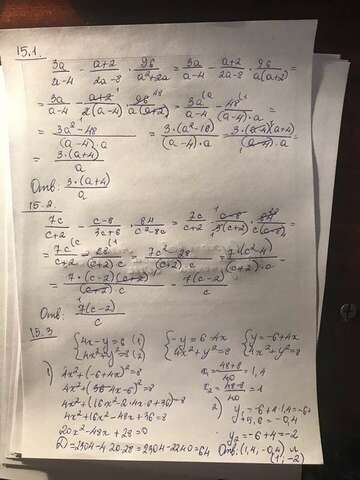 15.1.
3a/(a-4) - (a+2)/(2a-8) · 96/(a²+2a) = 3a/(a-4) - (a+2)/(2a-8) · 96/(a(a+2)) =
= 3a/(a-4) - (a+2)/(2(a-4)) · 96/(a(a+2)) = 3a/(a-4) - 48/((a-4)·a) =
= (3a²-48)/((a-4)·a) = 3·(a²-16)/((a-4)·a) = 3·(a-4)(a+4)/((a-4)·a) =
= 3·(a+4)/a
Отв: 3·(a+4)/a
15.2.
7c/(c+2) - (c-8)/(3c+6) · 84/(c²-8c) = 7c/(c+2) - (c-8)/(3(c+2)) · 84/(c(c-8)) =
= 7c/(c+2) - 28/((c+2)·c) = (7c²-28)/((c+2)·c) = 7(c²-4)/((c+2)·c) =
= 7·(c-2)(c+2)/((c+2)·c) = 7(c-2)/c
Отв: 7(c-2)/c
15.3
{4x-y=6 (1) {-y=6-4x {y=-6+4x
{4x²+y²=8 (2) {4x²+y²=8 {4x²+y²=8
1) 4x²+(-6+4x)²=8
4x²+(4x-6)²=8
4x²+(16x²-2·4x·6+36)=8
4x²+16x²-48x+36=8
20x²-48x+28=0
D=2304-4·20·28=2304-2240=64
x₁=(48+8)/40=1,4
x₂=(48-8)/40=1
2) y₁=-6+4·1,4=-6+
+5,6=-0,4
y₂=-6+4=-2
Отв: (1,4; -0,4) и
(1; -2)